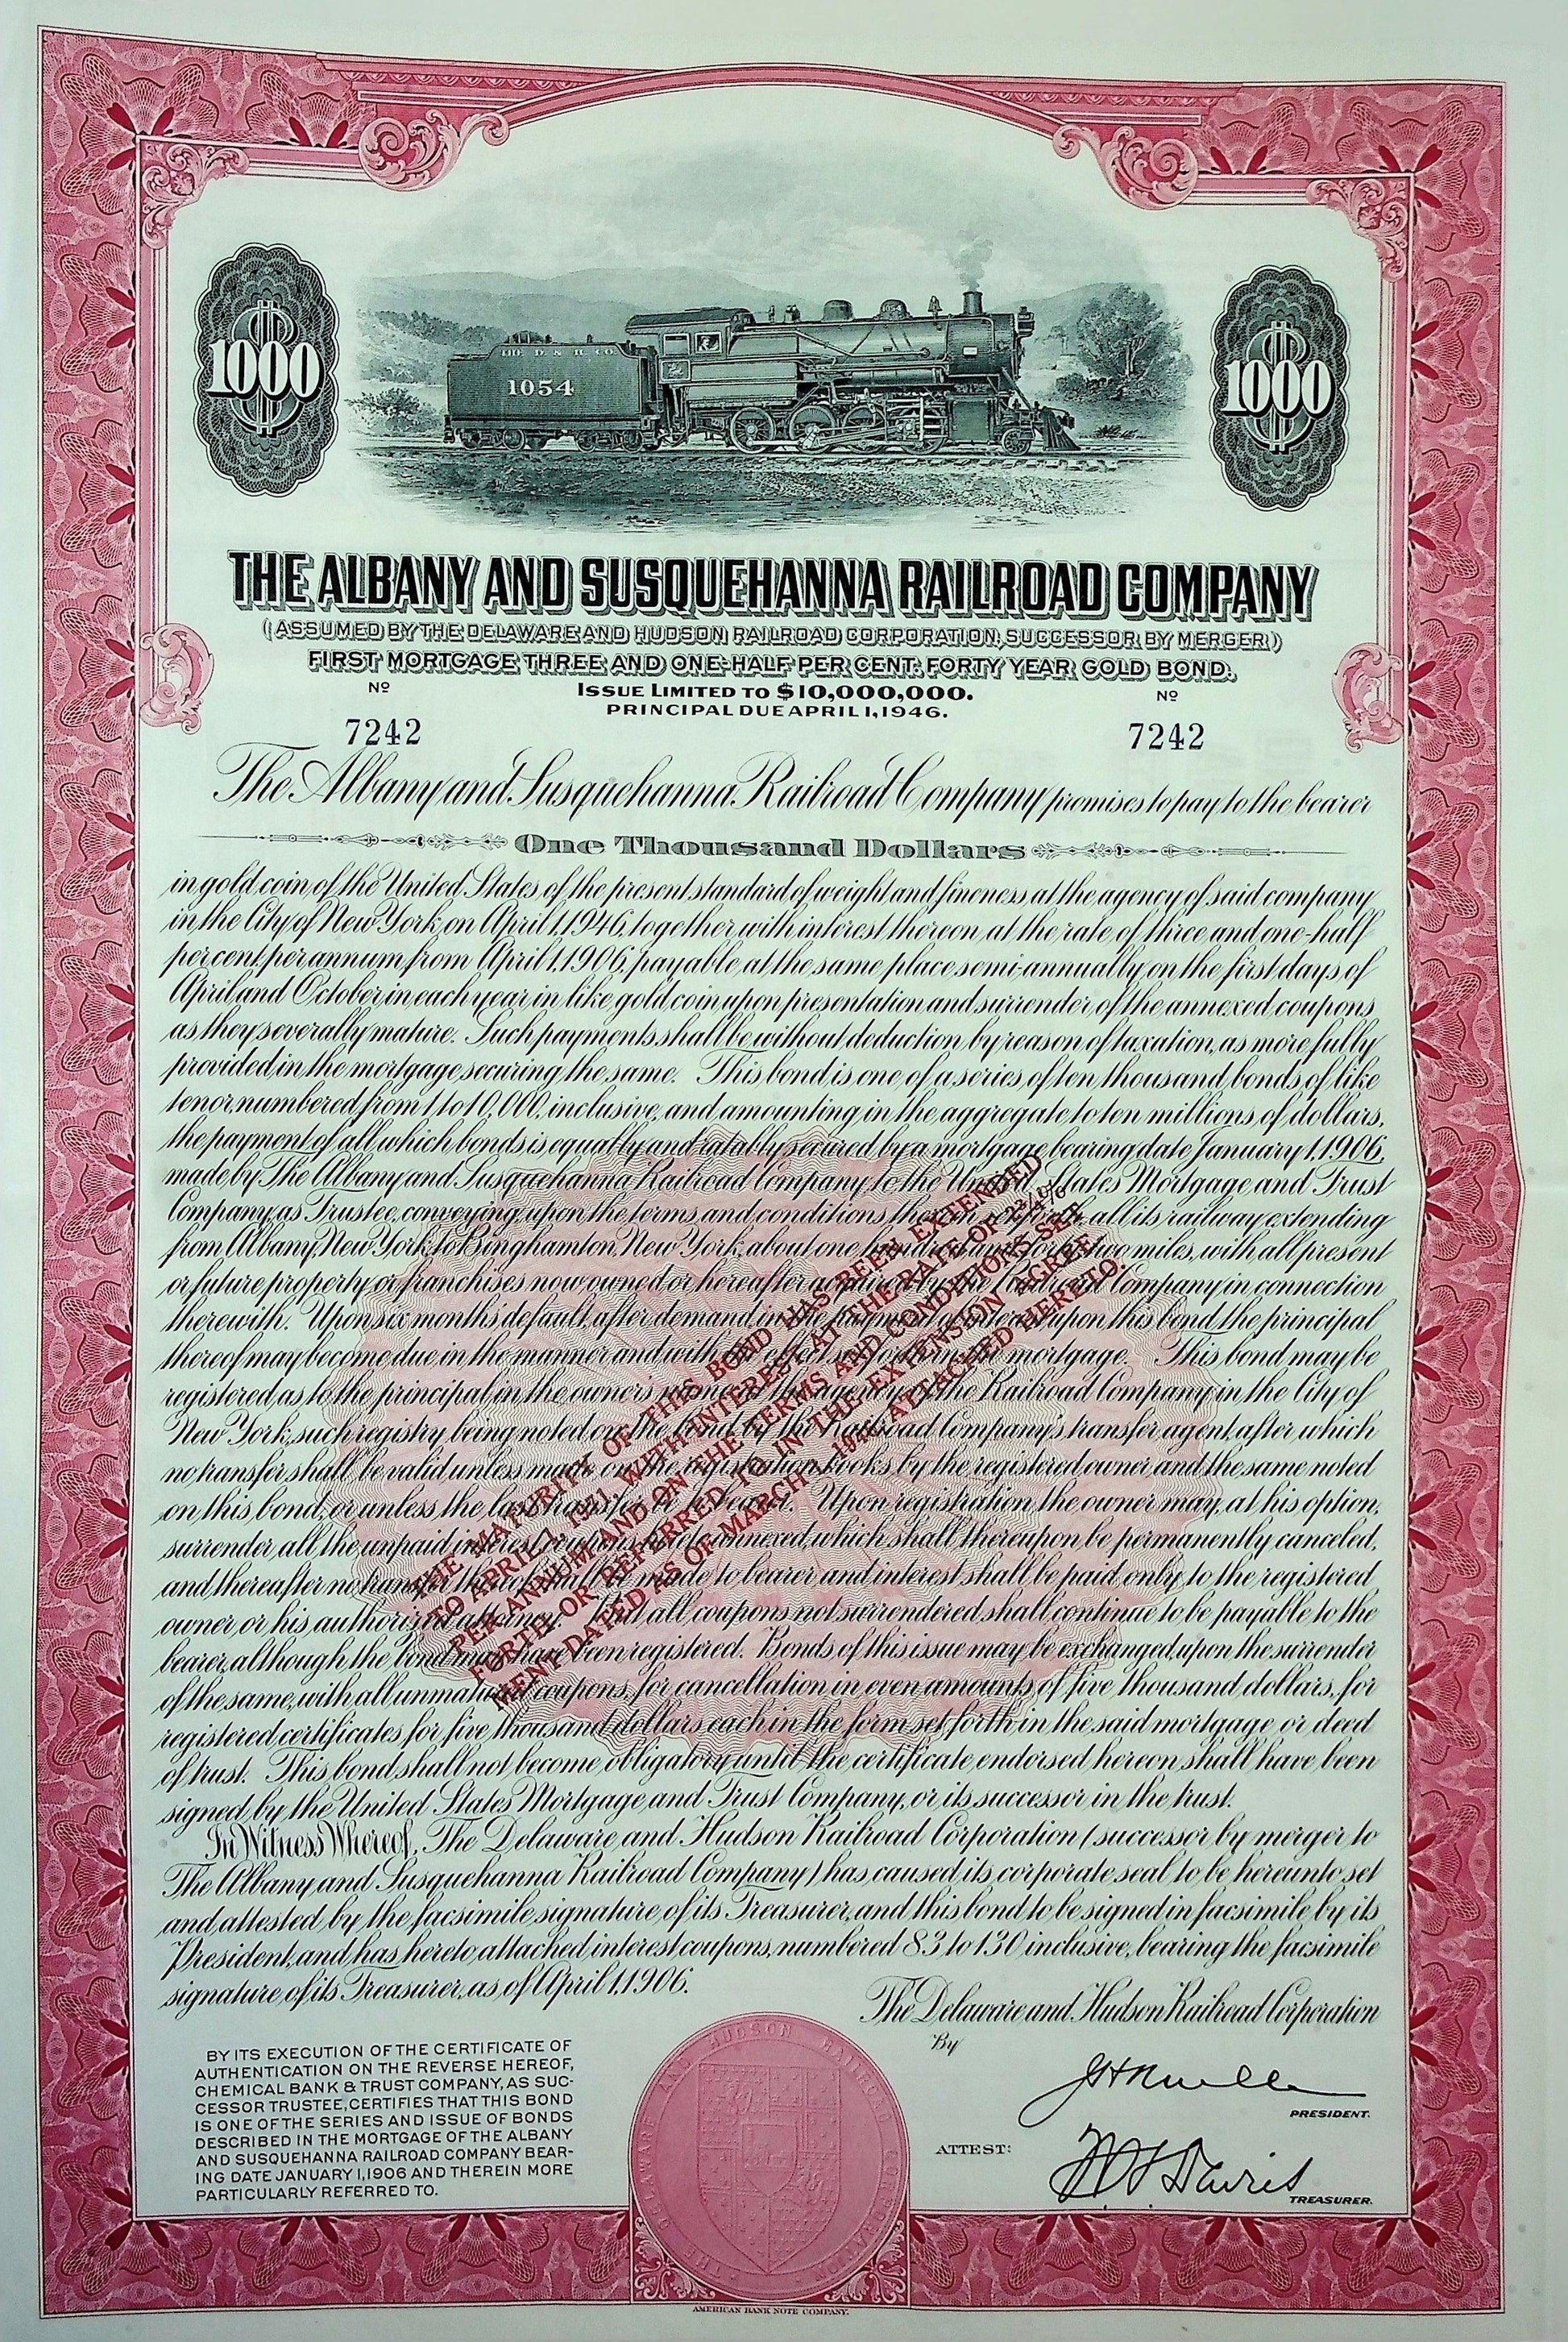 THE D. & H. CO.
1054
1000
1000
THE ALBANY AND SUSQUEHANNA RAILROAD COMPANY
(ASSUMED BY THE DELAWARE AND HUDSON RAILROAD CORPORATION, SUCCESSOR BY MERGER)
FIRST MORTGAGE THREE AND ONE-HALF PER CENT. FORTY YEAR GOLD BOND.
ISSUE LIMITED TO $10,000,000.
PRINCIPAL DUE APRIL 1, 1946.
Nº
7242
Nº
7242
The Albany and Susquehanna Railroad Company promises to pay to the bearer
One Thousand Dollars
in gold coin of the United States of the present standard of weight and fineness at the agency of said company
in the City of New York on April 1, 1946, together with interest thereon at the rate of three and one-half
per cent per annum from April 1, 1906, payable at the same place semi-annually on the first days of
April and October in each year in like gold coin upon presentation and surrender of the annexed coupons
as they severally mature. Such payments shall be without deduction by reason of taxation, as more fully
provided in the mortgage securing the same. This bond is one of a series of ten thousand bonds of like
tenor, numbered from 1 to 10,000, inclusive, and amounting in the aggregate to ten millions of dollars,
the payment of all which bonds is equally and ratably secured by a mortgage bearing date January 1, 1906,
made by The Albany and Susquehanna Railroad Company to the United States Mortgage and Trust
Company, as Trustee, conveying, upon the terms and conditions therein expressed, all its railway extending
from Albany, New York, to Binghamton, New York, about one hundred and forty two miles, with all present
or future property or franchises now owned or hereafter acquired by the Railroad Company in connection
therewith. Upon six months' default, after demand in the payment of interest upon this bond the principal
thereof may become due in the manner and with the effect set forth in the mortgage. This bond may be
registered as to the principal in the owner's name at the agency of the Railroad Company in the City of
New York, such registry being noted on the bond by the Railroad Company's transfer agent, after which
no transfer shall be valid unless made on the registration books by the registered owner and the same noted
on this bond, or unless the last transfer be to bearer. Upon registration, the owner may, at his option,
surrender all the unpaid interest coupons hereto annexed, which shall thereupon be permanently canceled,
and thereafter no transfer thereof shall be made to bearer and interest shall be paid only to the registered
owner or his authorized attorney. But all coupons not surrendered shall continue to be payable to the
bearer, although the bond may have been registered. Bonds of this issue may be exchanged, upon the surrender
of the same, with all unmatured coupons, for cancellation in even amounts of five thousand dollars, for
registered certificates for five thousand dollars each in the form set forth in the said mortgage or deed
of trust. This bond shall not become obligatory until the certificate endorsed hereon shall have been
signed by the United States Mortgage and Trust Company, or its successor in the trust.
In Witness Whereof, The Delaware and Hudson Railroad Corporation (successor by merger to
The Albany and Susquehanna Railroad Company) has caused its corporate seal to be hereunto set
and attested by the facsimile signature of its Treasurer, and this bond to be signed in facsimile by its
President, and has hereto attached interest coupons, numbered 83 to 130 inclusive, bearing the facsimile
signature of its Treasurer, as of April 1, 1906.
THE MATURITY OF THIS BOND HAS BEEN EXTENDED
TO APRIL 1, 1971, WITH INTEREST AT THE RATE OF 2¼%
PER ANNUM AND ON THE TERMS AND CONDITIONS SET
FORTH, OR REFERRED TO IN THE EXTENSION AGREE-
MENT DATED AS OF MARCH 1946 ATTACHED HERETO.
The Delaware and Hudson Railroad Corporation
By
PRESIDENT.
ATTEST:
Davis
TREASURER.
BY ITS EXECUTION OF THE CERTIFICATE OF
AUTHENTICATION ON THE REVERSE HEREOF,
CHEMICAL BANK & TRUST COMPANY, AS SUC-
CESSOR TRUSTEE, CERTIFIES THAT THIS BOND
IS ONE OF THE SERIES AND ISSUE OF BONDS
DESCRIBED IN THE MORTGAGE OF THE ALBANY
AND SUSQUEHANNA RAILROAD COMPANY BEAR-
ING DATE JANUARY 1, 1906 AND THEREIN MORE
PARTICULARLY REFERRED TO.
THE DELAWARE AND HUDSON RAILROAD CORPORATION
AMERICAN BANK NOTE COMPANY.